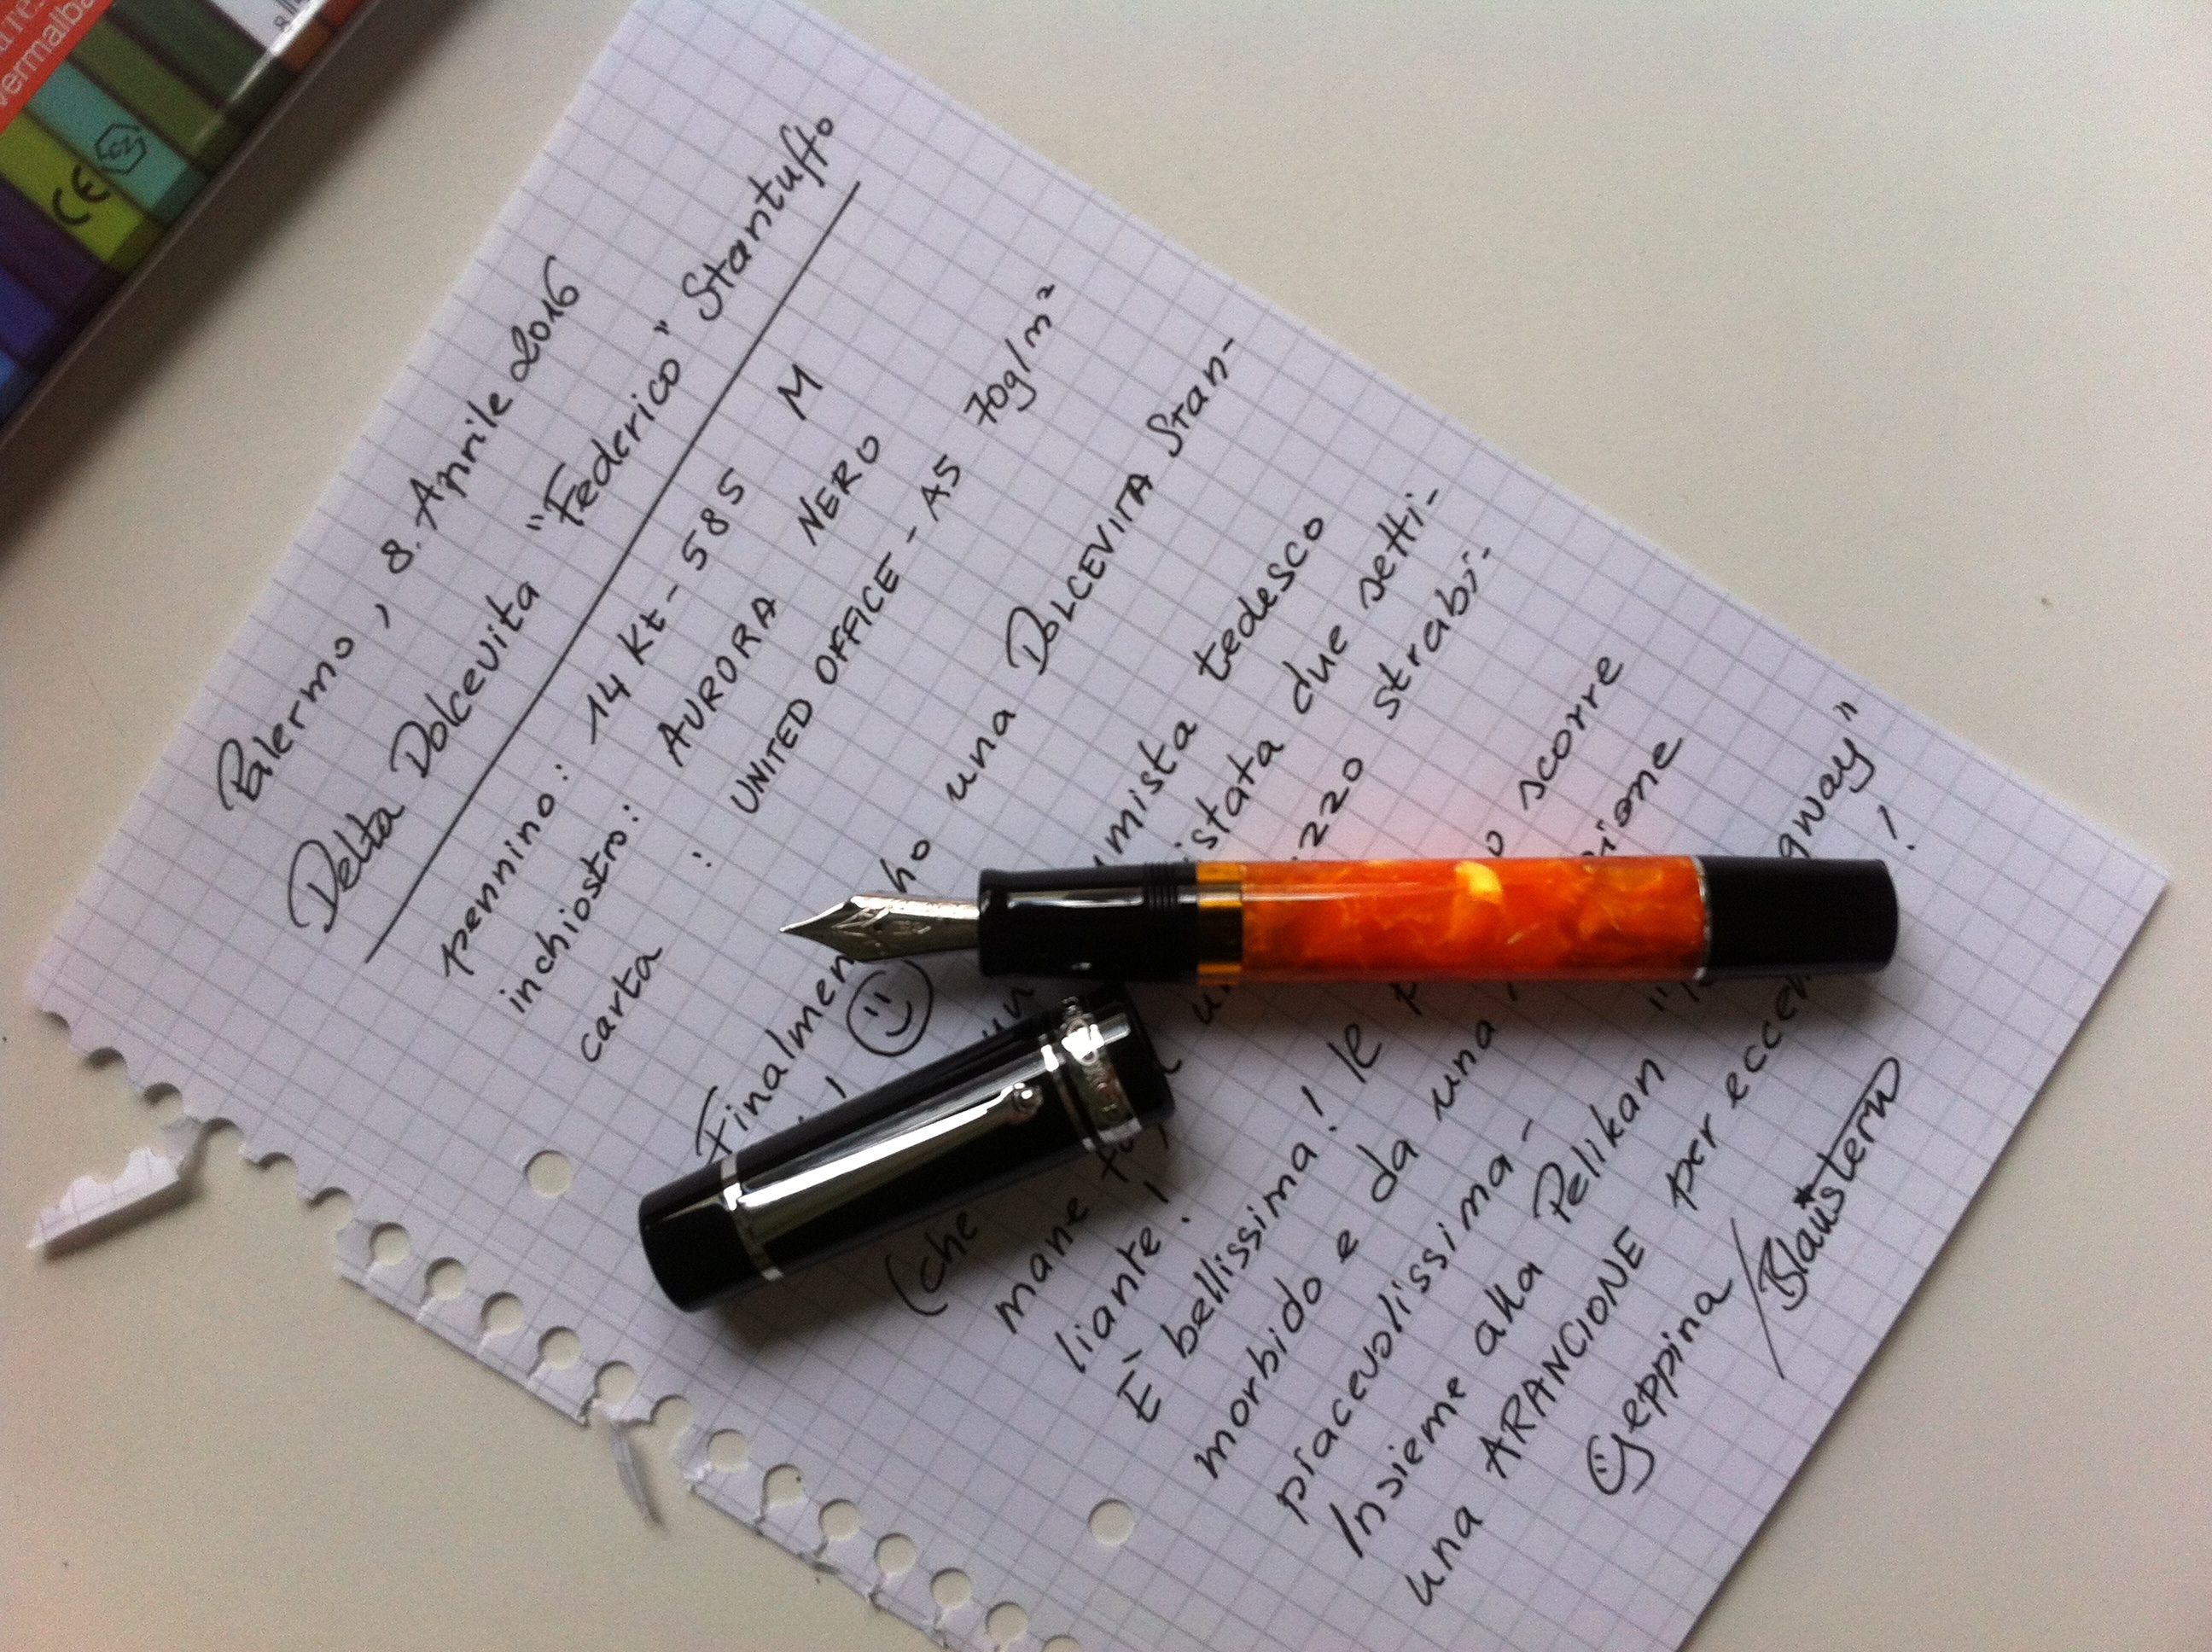 Palermo, 8. Aprile 2016
Delta Dolcevita "Federico" Stantuffo
pennino: 14 Kt - 585 M
inchiostro: AURORA NERO
carta : UNITED OFFICE - A5 70g/m²
ho una DOLCEVITA Stan-
tedesco
(che due setti-
mane strabi-
liante!
È bellissima! le scorre
morbido e da una
piacevolissima -
Insieme alla Pelikan
una ARANCIONE per
Geppina / Blaustern
CE